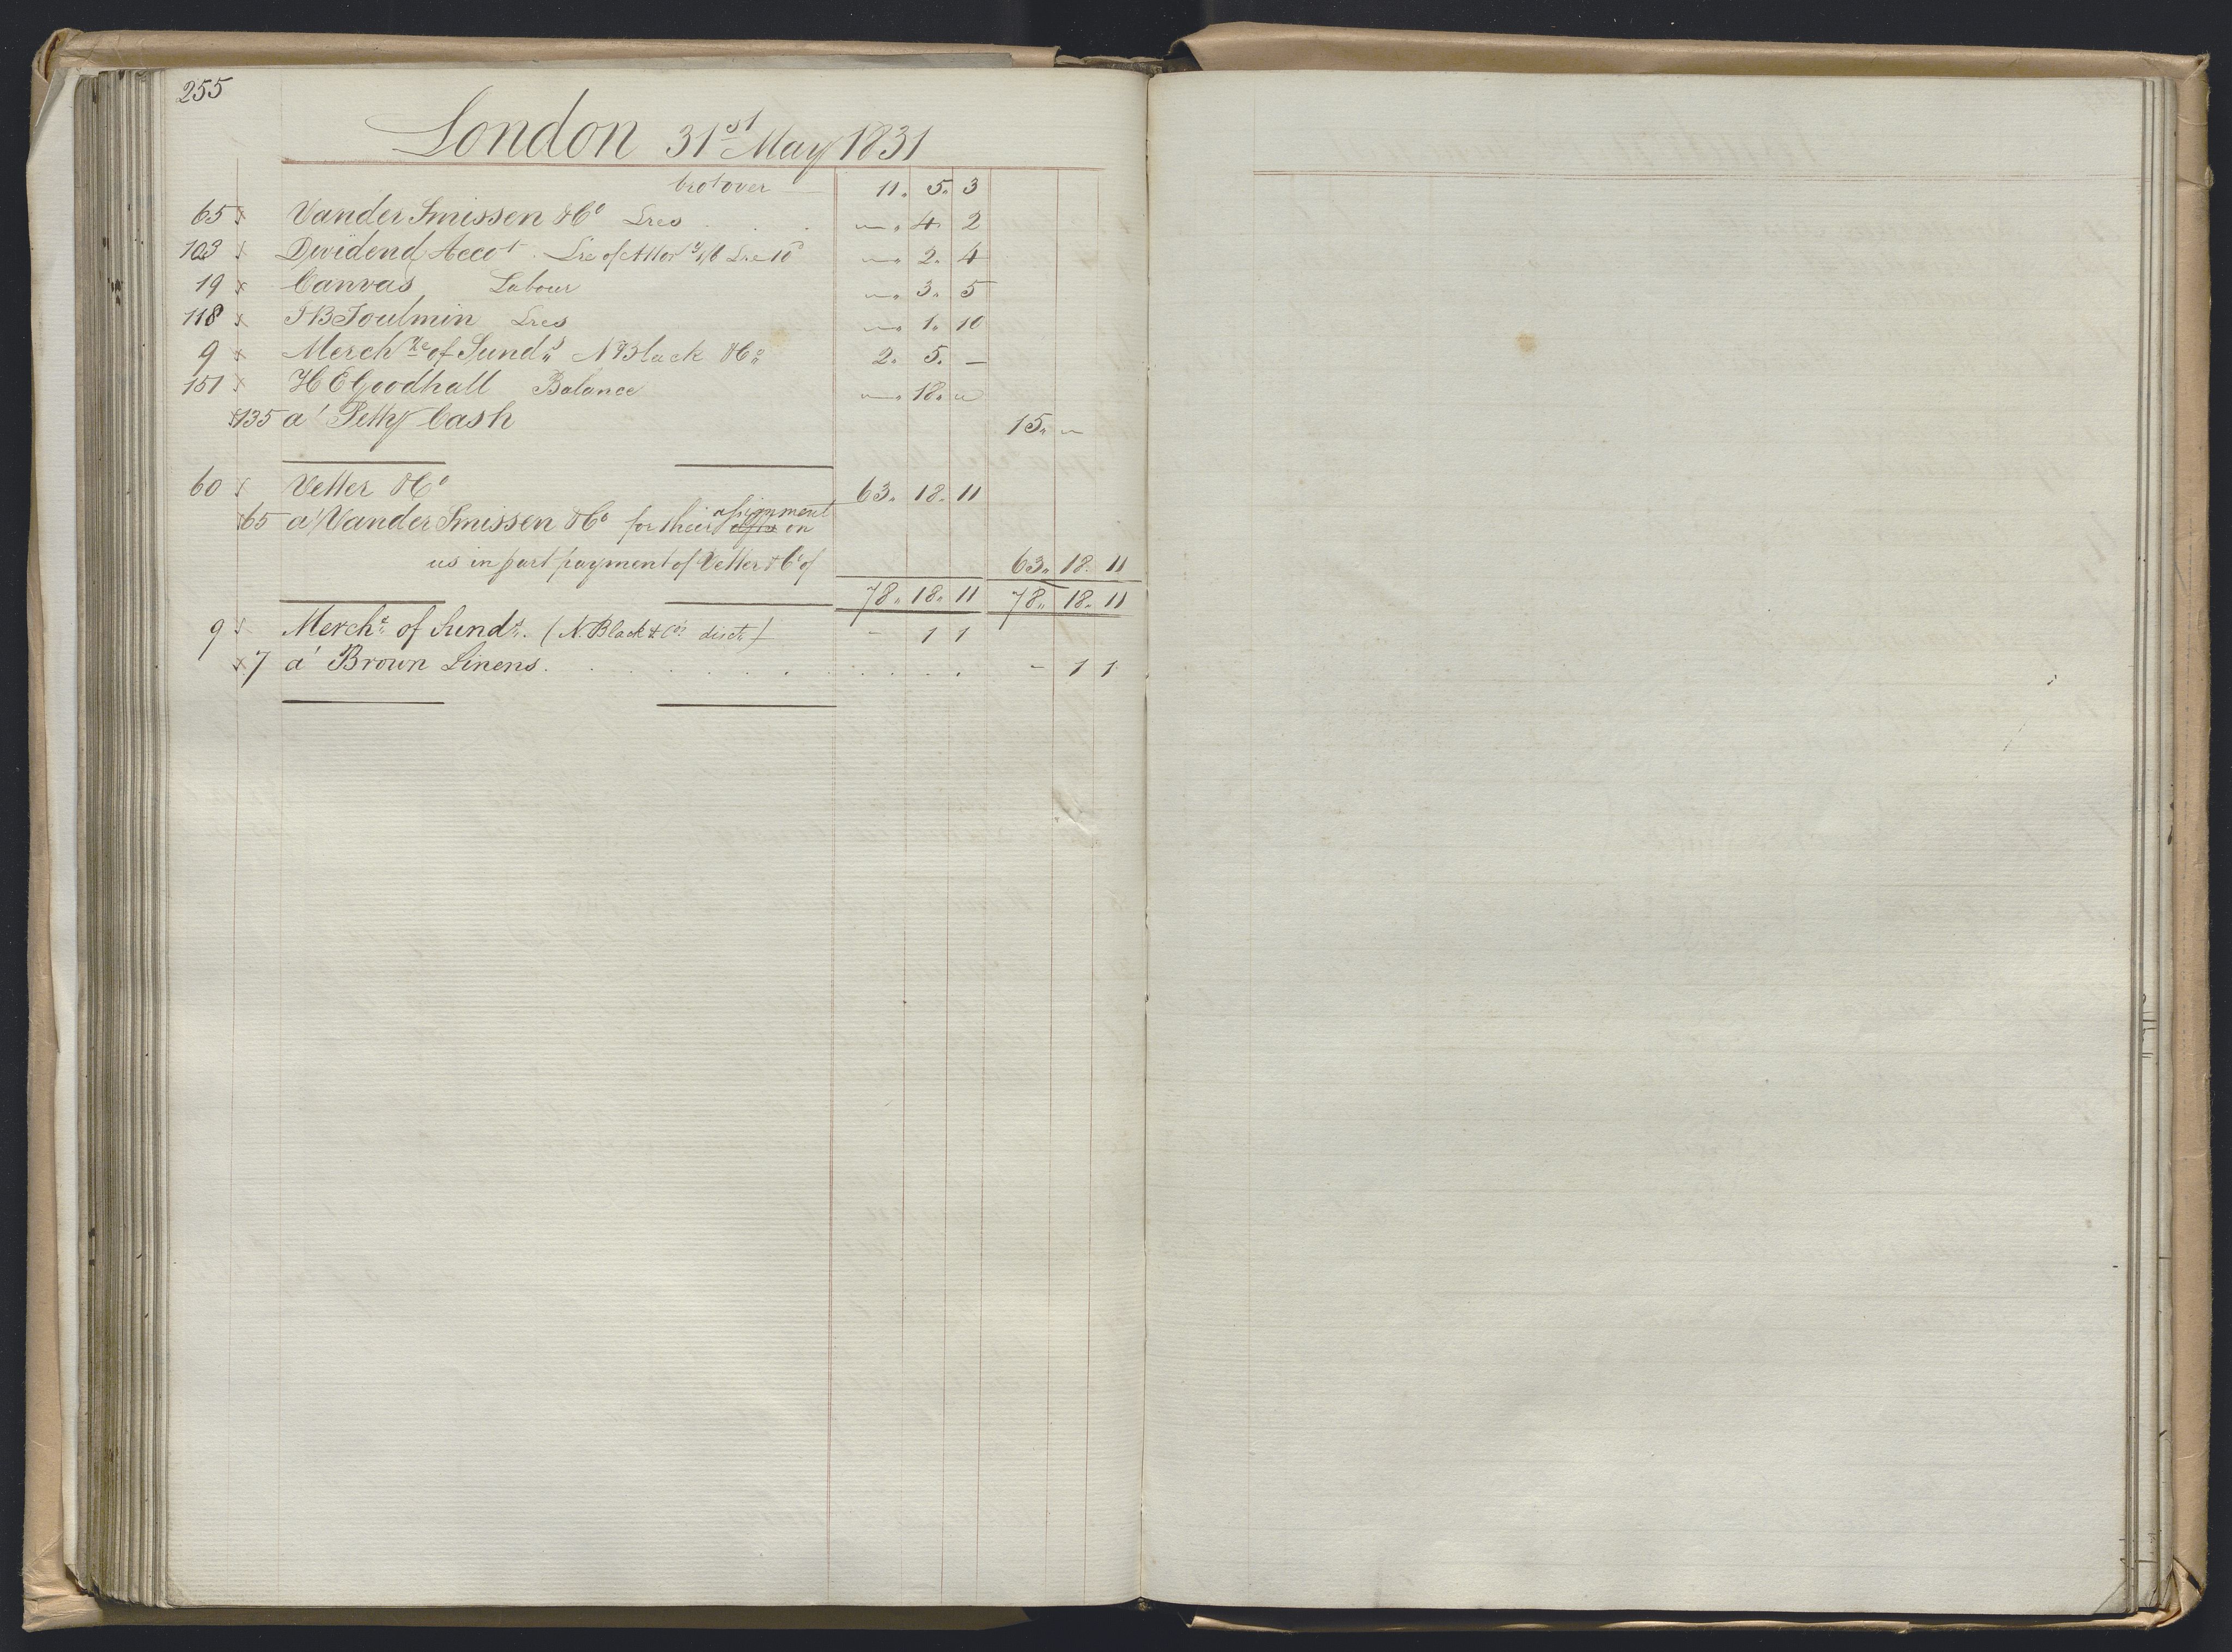 255
London 31st May 1831
brot over — 11. 5. 3
65 x Vander Smissen & Co Lres . . . — 4 2
103 x Dividend Accot . Lre of Attory 1/6 Lre 10d — 2. 4
19 x Canvas Labour — 3. 5
118 x J B Toulmin Lres — 1. 10
9 x Merchze of Sunds N Black & Co 2. 5. —
151 x H E Goodhall Balance — 18. —
x 135 a' Petty Cash 15. —
60 x Vetter & Co 63. 18. 11
x 65 a' Vander Smissen & Co for their assignment on
us in part payment of Vetter & Co of 63. 18. 11
78. 18. 11 78. 18. 11
9 x Merche of Sunds. (N. Black & Co's disct) - 1 1
x 7 a' Brown Linens. . . . . . . . . . . - 1 1